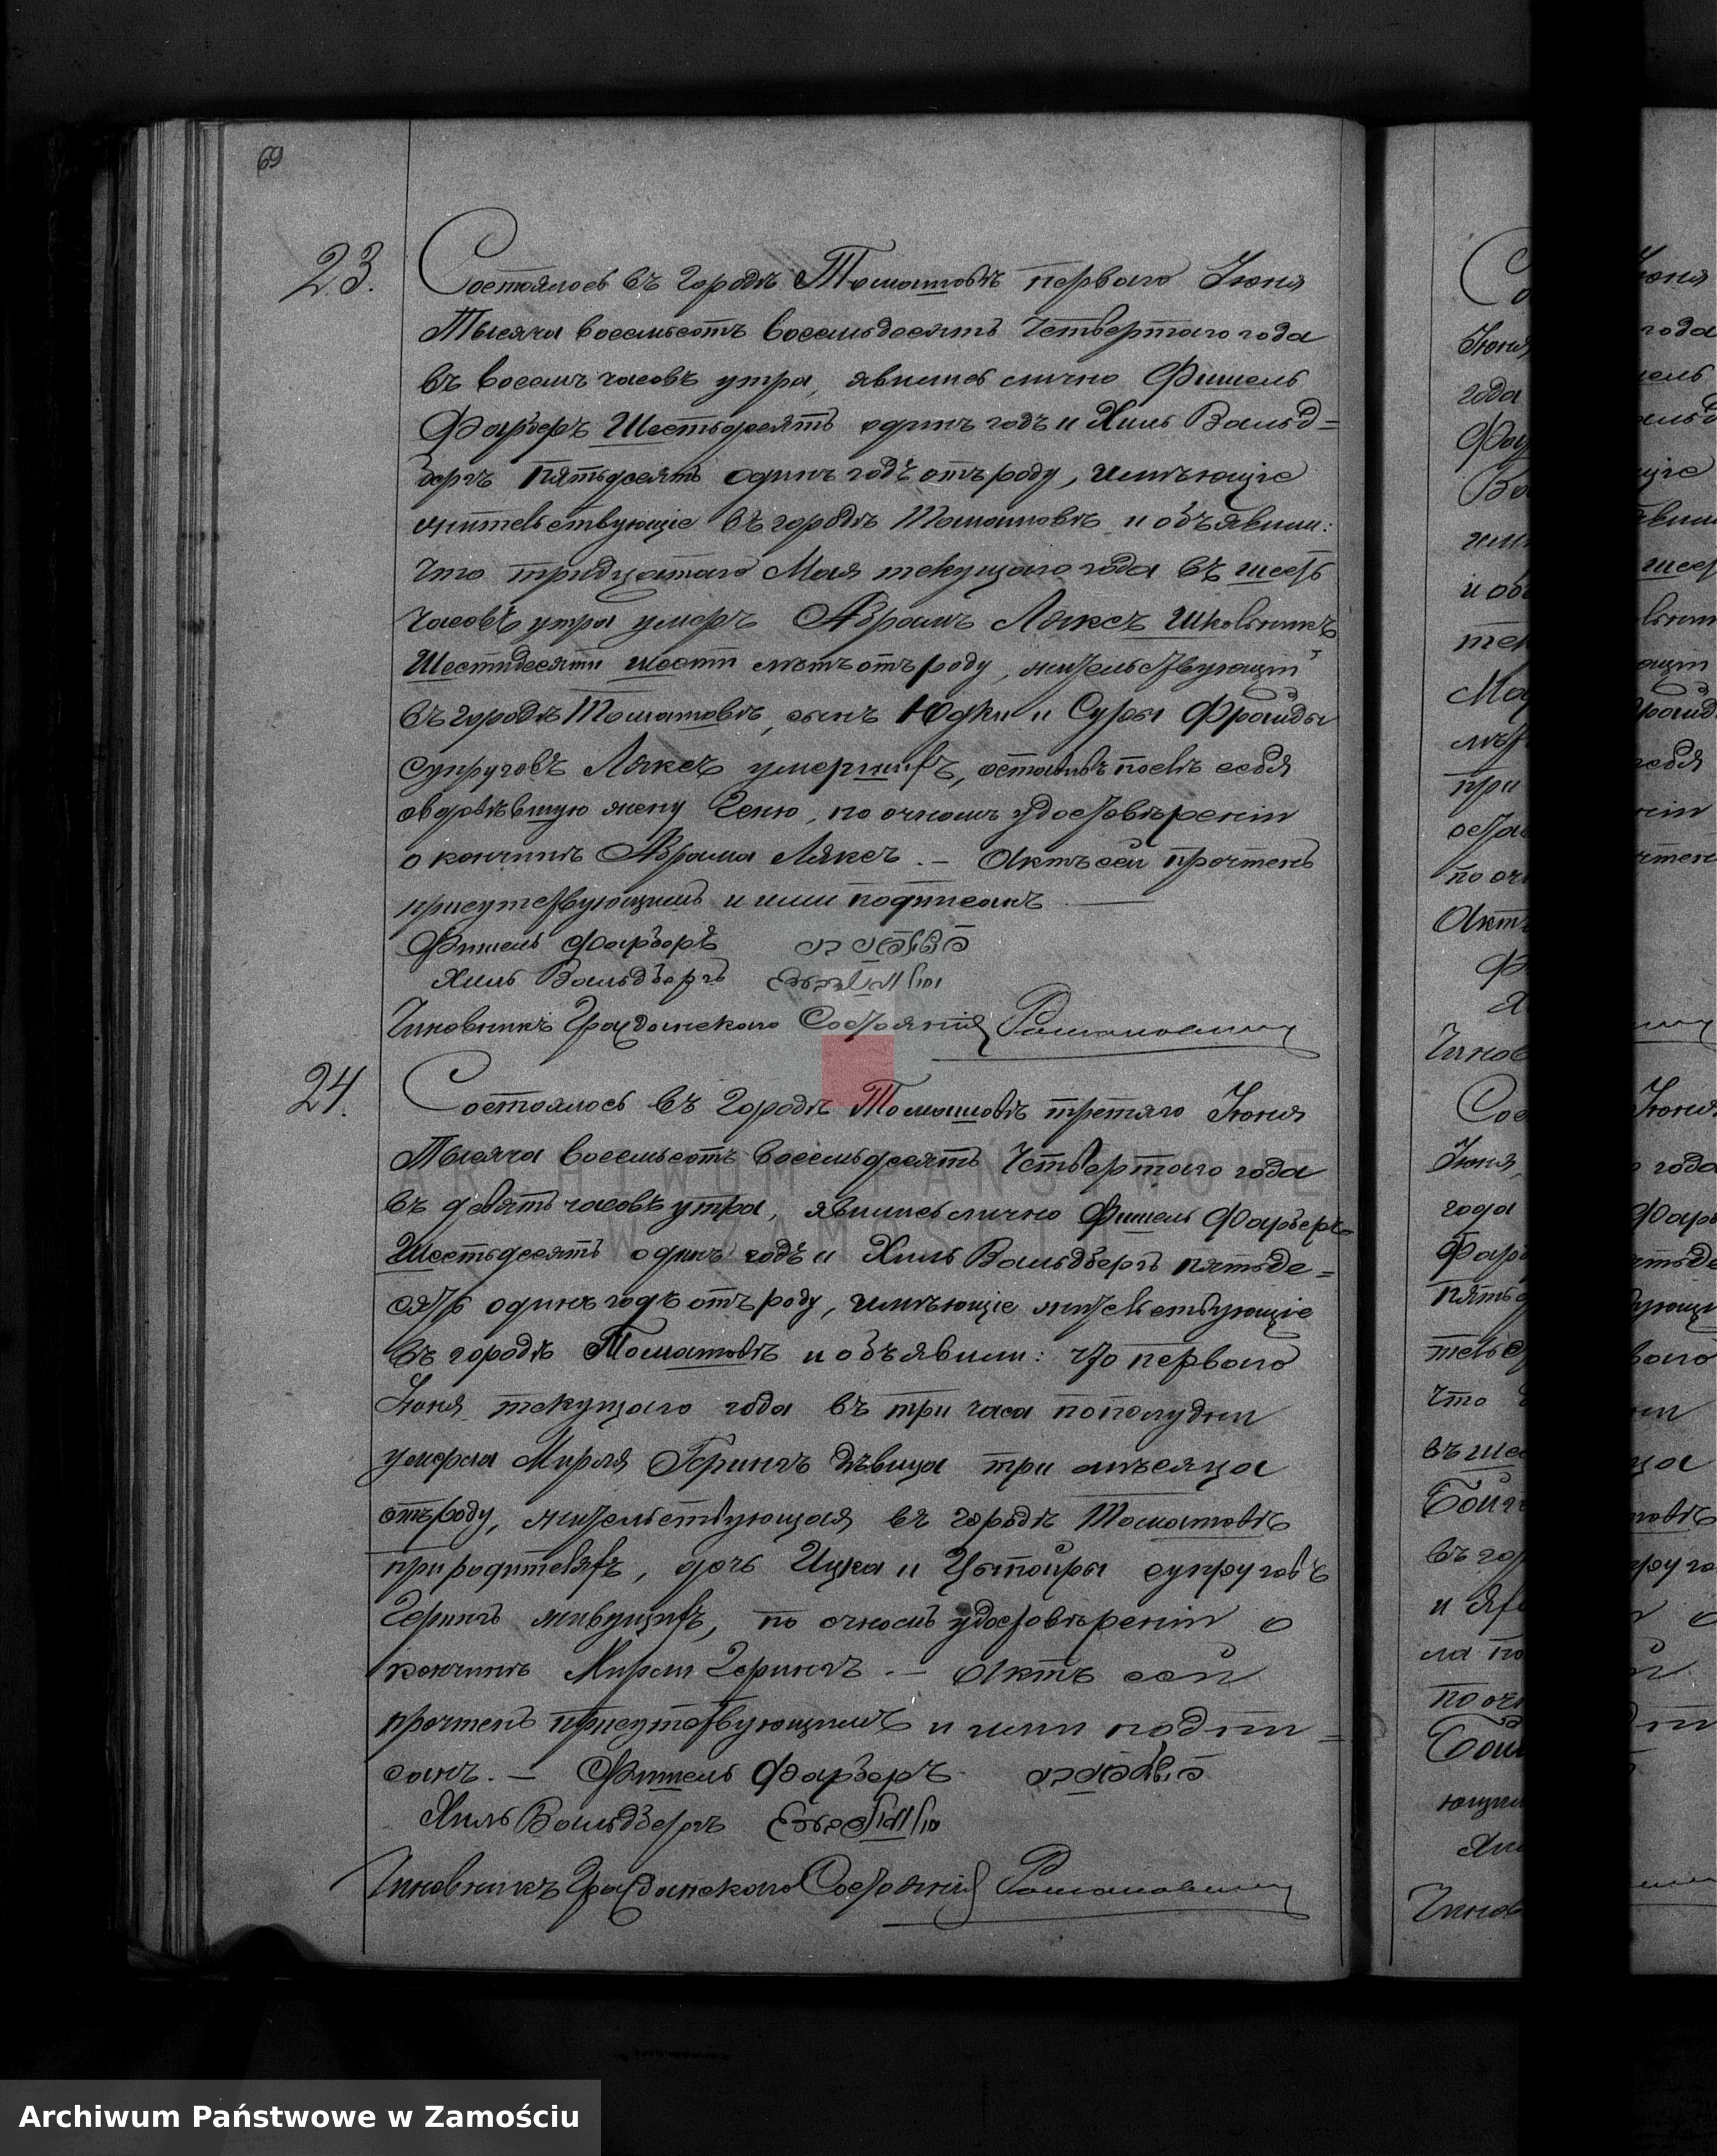 69
23.
Состоялось въ городѣ Томашовѣ перваго Іюня
Тысяча восемьсотъ восемьдесятъ четвертаго года
въ восемь часовъ утра, явились лично Фишель
Фарберъ Шестьдесятъ одинъ годъ и Хиль Вальд=
бергъ пятьдесятъ одинъ годъ отъ роду, имѣющіе
жительствующіе въ городѣ Томашовѣ и объявили:
что тридцатаго Мая текущаго года въ шесть
часовъ утра умеръ Абрамъ Ляксъ Школьникъ
Шестидесяти шести лѣтъ отъ роду, жительствующій
въ городѣ Томашовѣ, сынъ Юдки и Суры Фрайды
супруговъ Ляксъ умершихъ, оставивъ послѣ себя
овдовѣвшую жену Геню, по очномъ удостовѣреніи
о кончинѣ Абрама Ляксъ. — Актъ сей прочтенъ
присутствующимъ и ими подписанъ —
Фишель Фарберъ
Хиль Вальдбергъ
Чиновникъ Гражданскаго Состоянія Романовичъ
24.
Состоялось въ городѣ Томашовѣ третяго Іюня
Тысяча восемьсотъ восемьдесятъ четвертаго года
въ девять часовъ утра, явились лично Фишель Фарберъ
Шестьдесятъ одинъ годъ и Хиль Вальдбергъ пятьде=
сятъ одинъ годъ отъ роду, имѣющіе жительствующіе
въ городѣ Томашовѣ и объявили: что перваго
Іюня текущаго года въ три часа пополудни
умерла Мирля Герингъ дѣвица три мѣсяца
отъ роду, жительствующая въ городѣ Томашовѣ
при родителяхъ, дочь Ицка и Цытойры супруговъ
Герингъ живущихъ, по очномъ удостовѣреніи о
кончинѣ Мирли Герингъ. — Актъ сей
прочтенъ присутствующимъ и ими подпи=
санъ. — Фишель Фарберъ
Хиль Вальдбергъ
Чиновникъ Гражданскаго Состоянія Романовичъ
ARCHIWUM PAŃSTWOWE
W ZAMOŚCIU
Archiwum Państwowe w Zamościu